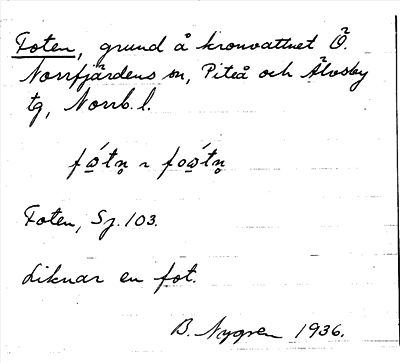 Foten, grund å kronvattnet Ö.
Norrfjärdens sn, Piteå och Älvsby
tg, Norrb. l.
fó̲tn̥ ~ foó̲tn̥
Foten, Sj. 103.
Liknar en fot.
B. Nygren 1936.